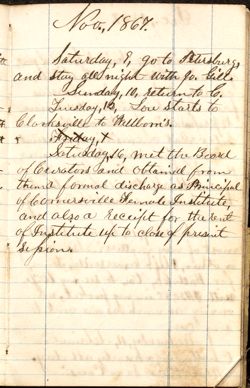 Nov, 1867.
Saturday, 9, go to Petersburg,
and stay all night with Jo. Gill.
Sunday, 10, return to C.
Tuesday, 13, Lou starts to
Clarksville to Wellborn's.
Friday,
Saturday, 16, met the Board
of Curators and obtained from
them a formal discharge as Principal
of Cornersville Female Institute,
and also a Receipt for the rent
of Institute up to close of present
Session.